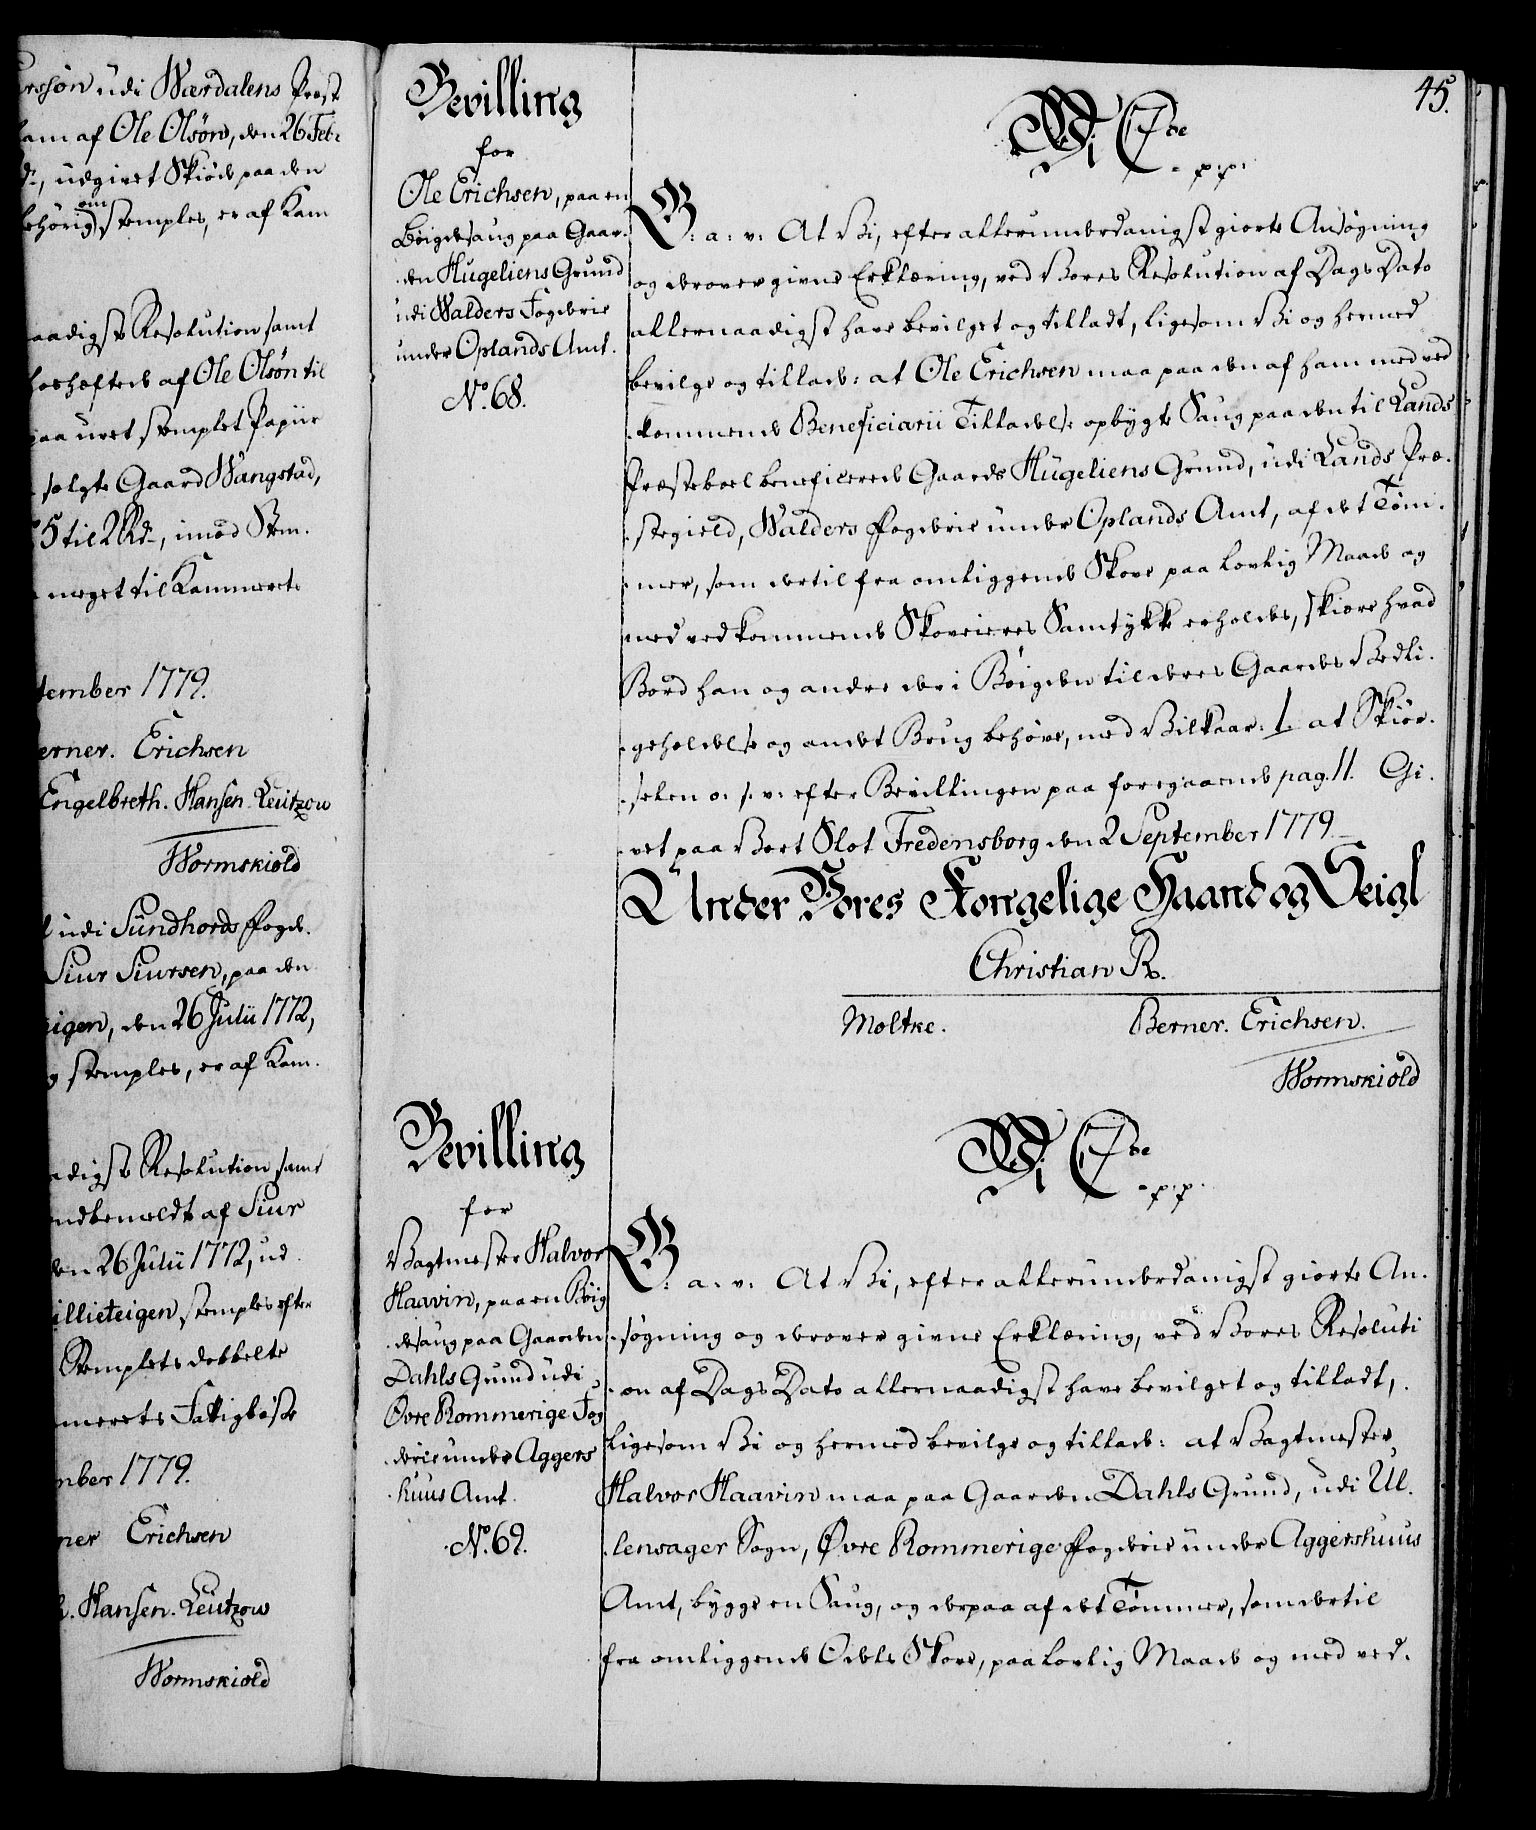 rssøn udi Wærdalens Præst
ham af Ole Olsøn, den 26 Feb:
udgivet Skiøde paa den
behørig om stemples, er af Kam
aadigste Resolution samt
hoshæftede af Ole Olsøn til
paa uret stemplet Papiir
solgte Gaard Wangstad,
5 til 2 Rd, imod Stem.
meget til Kammerets
tember 1779.
erner. Erichsen
Engelbreth. Hansen. Leützow
Wormskiold
udi Sündhords Fogd.
Siur Siursen, paa den
eigen, den 26 Julii 1772,
g stemples, er af Kam.
adigste Resolution samt
ndbemeldte af Siur
den 26 Julii 1772, ud.
illieteigen stemples efter
Stemplets dobbelte
merets Fattigbøsse
mber 1779.
ner Erichsen
h. Hansen. Leutzow
Wormskiold
45.
Bevilling
for
Ole Erichsen, paa en
Bøigdesaug paa Gaar-
den Hugeliens Grund
udi Walders Fogderie
under Oplands Amt.
No. 68.
Wi C 7de
p. p.
G: a: v: At Vi, efter allerunderdanigst giorte Ansøgning
og derover givne Erklæring, ved Vores Resolution af Dags Dato
allernaadigst have bevilget og tilladt, ligesom Vi og hermed
bevilge og tillade: at Ole Erichsen maa paa den af ham med ved
kommende Beneficiarii Tilladelse opbygte Saug paa den til Lands
Præsteboel beneficerede Gaards Hügeliens Grund, udi Lands Præ-
stegield, Walders Fogderie under Oplands Amt, af det Tøm-
mer, som dertil fra omliggende Skove paa lovlig Maade og
med vedkommende Skoveieres Samtykke erholdes, skiære hvad
Bord han og andre der i Bøigden til deres Gaardes Vedli-
geholdelse og andet Brug behøve, med Vilkaar: 1. at Skiør-
selen o. s. v. efter Bevillingen paa foregaaende pag. 11. Gi-
vet paa Vort Slot Fredensborg den 2 September 1779.
Under Vores Kongelige Haand og Seigl
Christian R.
Moltke. Berner. Erichsen.
Wormskiold
Bevilling
for
Vagtmester Halvor
Haavin, paa en Bøig
desaug paa Gaarden
Dahls Grund udi
Øvre Rommerige Fog
derie under Aggers
huus Amt.
No. 69.
Wi C 7de
p. p.
G: a. v. At Vi, efter allerunderdanigst giorte An-
søgning og derover givne Erklæring, ved Vores Resoluti
on af Dags Dato allernaadigst have bevilget og tilladt,
ligesom Vi og hermed bevilge og tillade: at Vagtmester
Halvor Haavin maa paa Gaarden Dahls Grund, udi Ul-
lensager Sogn, Øvre Rommerige Fogderie under Aggershuus
Amt, bygge en Saug, og derpaa af det Tømmer, som dertil
fra omliggende Odels Skove, paa lovlig Maade og med ved-